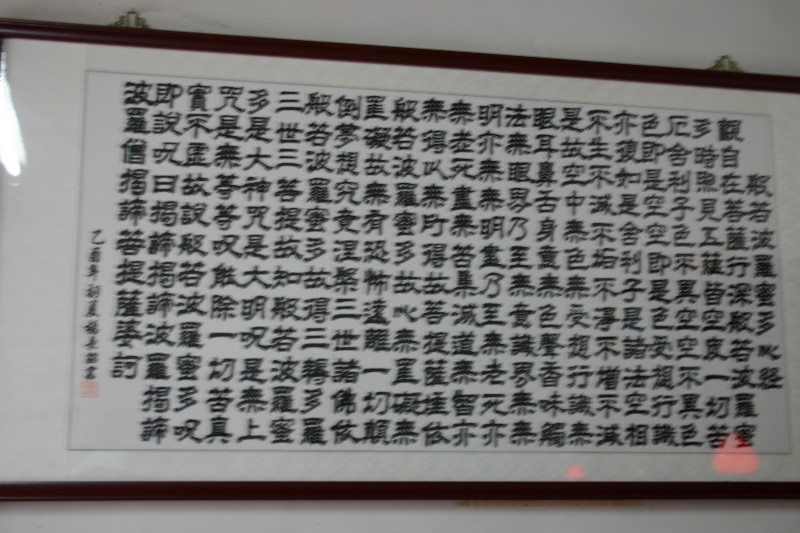 般若波羅蜜多心経
觀自在菩薩行深般若波羅蜜
多時照見五蘊皆空度一切苦
厄舍利子色不異空空不異色
色即是空空即是色受想行識
亦復如是舍利子是諸法空相
不生不滅不垢不淨不增不減
是故空中無色無受想行識無
眼耳鼻舌身意無色聲香味觸
法無眼界乃至無意識界無無
明亦無無明盡乃至無老死亦
無老死盡無苦集滅道無智亦
無得以無所得故菩提薩埵依
般若波羅蜜多故心無罣礙無
罣礙故無有恐怖遠離一切顛
倒夢想究竟涅槃三世諸佛依
般若波羅蜜多故得三多羅
三世三菩提故知般若波羅蜜
多是大神咒是大明呪是無上
咒是無等等呪能除一切苦真
實不虛故說般若波羅蜜多呪
即說呪曰揭諦揭諦波羅揭諦
波羅僧揭諦菩提薩婆訶
乙酉年初夏楊書